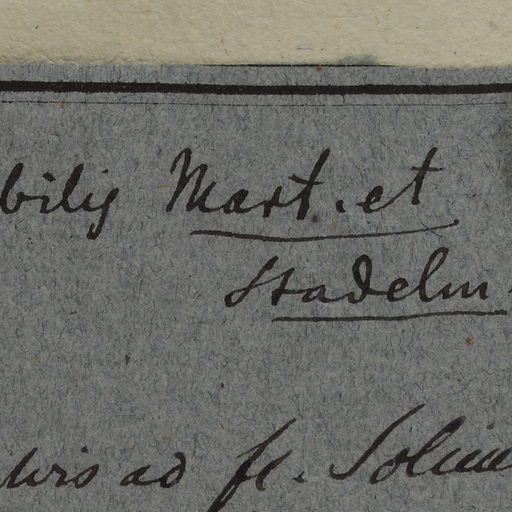 bilis Mart. et
Stadelm.
ad fl. Solim